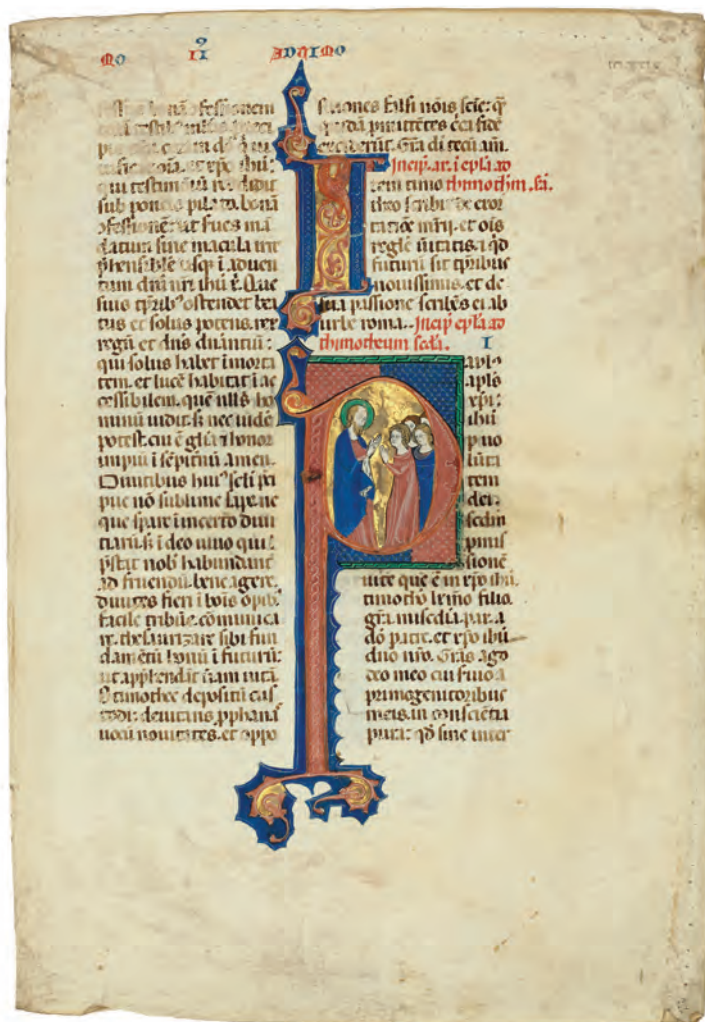 MO II AD TIMO
bonã ofessionem
testib' multis
et xp̃o ihũ:
qui testimoniũ reddidit
sub pontio pilato. bonã
ofessionē: ut serues mã
datum sine macula irre
p̃hensible usq ĩ aduen
tum dñi nr̃i ihũ x̃. Que
suis tp̃rib' ostendet bea
tus et solus potens. rex
regũ et dñs dñantiũ:
qui solus habet ĩmorta
tem. et lucē habitat ĩ ac
cessibilem. quē nlls ho
minũ uidit. s; nec uide
potest. cui ē gl̃ia ⁊ honor
impiũ ĩ sēpitnũ amen.
Diuitibus hui' scl̃i p̃ci
pue nõ sublime sape. ne
que spare ĩ incerto diui
tiarũ. s; ĩ deo uiuo qui
p̃stat nob' habundant
ad fruendũ. bene agere.
diuites fieri ĩ bõis opib'
facile tribue. cõmunica
re. thesaurizare sibi fun
damētũ bonũ ĩ futurũ:
ut apphendãt uẽam uitã.
O timothee depositũ cus
todi: deuitans pphanas
uocũ nouitates. et oppo
sitiones falsi nõis scie: q̃
quidã pmittētes c̃ca fidē
exciderũt. Grã di tecũ am.
Incip. ar. ĩ epl̃a ad
tem timo thimothm .ii.
theo scribit de exor
tatiõe mr̃ij. et oĩs
regle ũitatis. ⁊ qd
futurũ sit tp̃ribus
nouissimis. et de
sua passione scribēs ei ab
urbe roma. Incip epl̃a ad
thimotheum scd̃a. I
P aul'
apl̃s
xp̃i:
ihũ
p uo
lũta
tem
dei.
scd̃m
pmis
sionē
uite que ē in xp̃o ihũ.
timotho krimo filio.
grã. misc̃dia. pax. a
dõ patre. et xp̃o ihũ
dño nr̃o. Gr̃as ago
deo meo cui suio a
primogenitoribus
meis. in consciētia
pura: qd sine inter